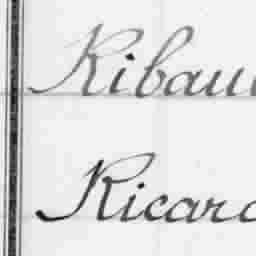 Ribau
Ricard